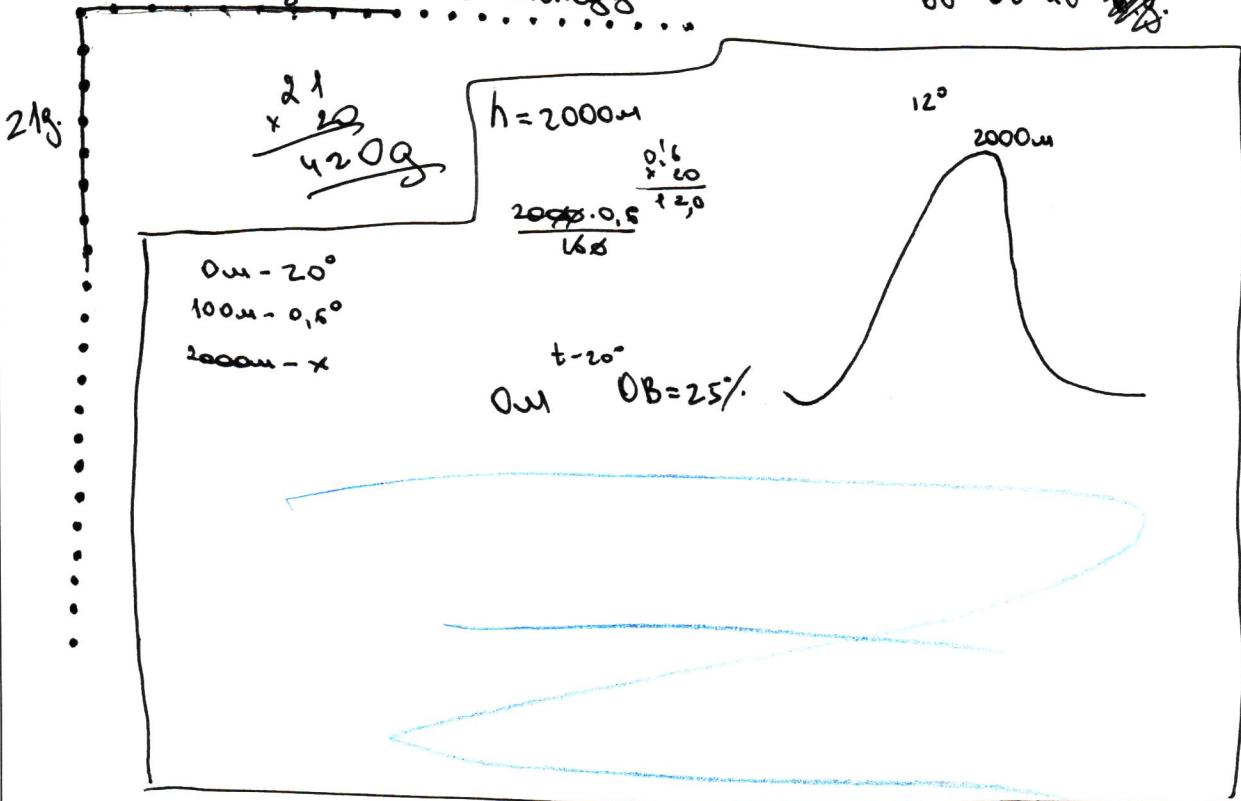 21g.
21
x 20
420g
h = 2000м
0,6
x 20
12,0
2000·0,6
100
12°
2000м
0м - 20°
100м - 0,6°
2000м - x
t - 20°
0м ОВ = 25%